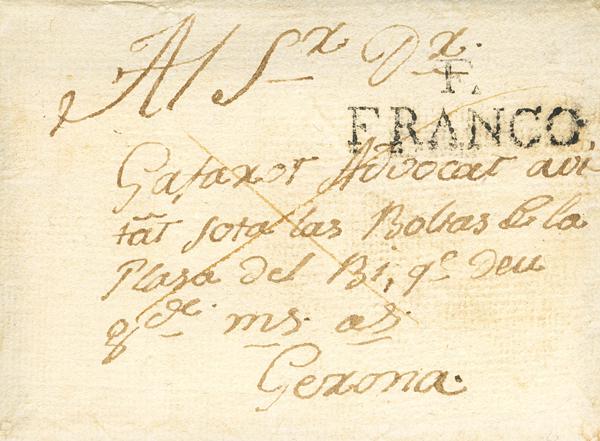 Al Sr Dr.
F.
FRANCO
Gafaror Advocat avi-
tāt sota las Boltas de la
Plasa del Bi, qe. Deu
gde. ms. as.
Gerona.